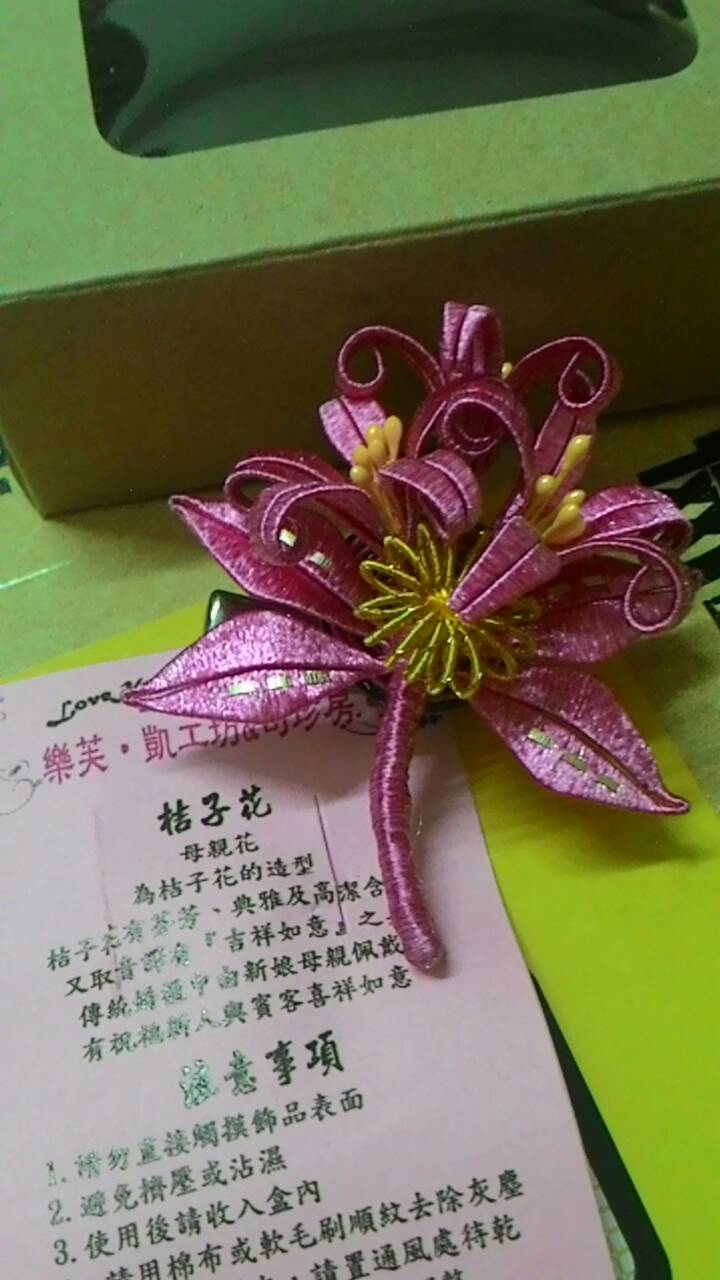 Love
樂芙·凱工坊&
桔子花
母親花
為桔子花的造型
桔子花有芬芳、典雅及高潔含
又取音諧有『吉祥如意』之
傳統婚禮中由新娘母親佩戴
有祝福新人與賓客喜祥如意
注意事項
1.請勿直接觸摸飾品表面
2.避免擠壓或沾濕
3.使用後請收入盒內
請用棉布或軟毛刷順紋去除灰塵
請置通風處待乾